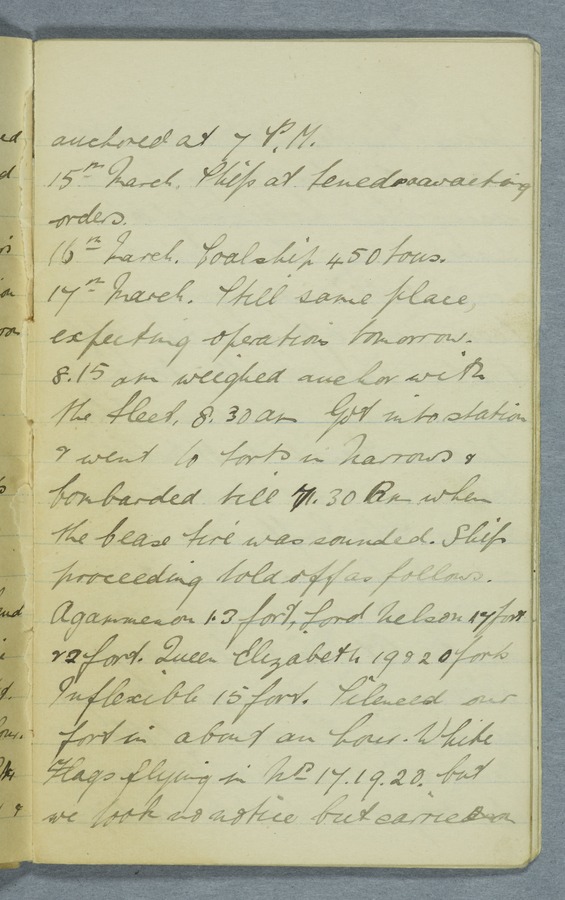 anchored at 7 P.M.
15th March. Ship at Tenedos awaiting
orders.
16th March. Coalship 450 tons.
17th March. Still same place,
expecting operation tomorrow.
8.15 am weighed anchor with
the fleet, 8.30 am Got into station
& went to forts in Narrows &
bombarded till 1.30 Pm when
the cease fire was sounded. Ships
proceeding told off as follows.
Agammenon 13 fort, Lord Nelson 17 fort
22 fort. Queen Elizabeth 19 & 20 forts
Inflexible 15 fort. Silenced our
fort in about an hour. White
Flags flying in No 17.19.20. but
we took no notice but carried on
ed
d
on
and
&